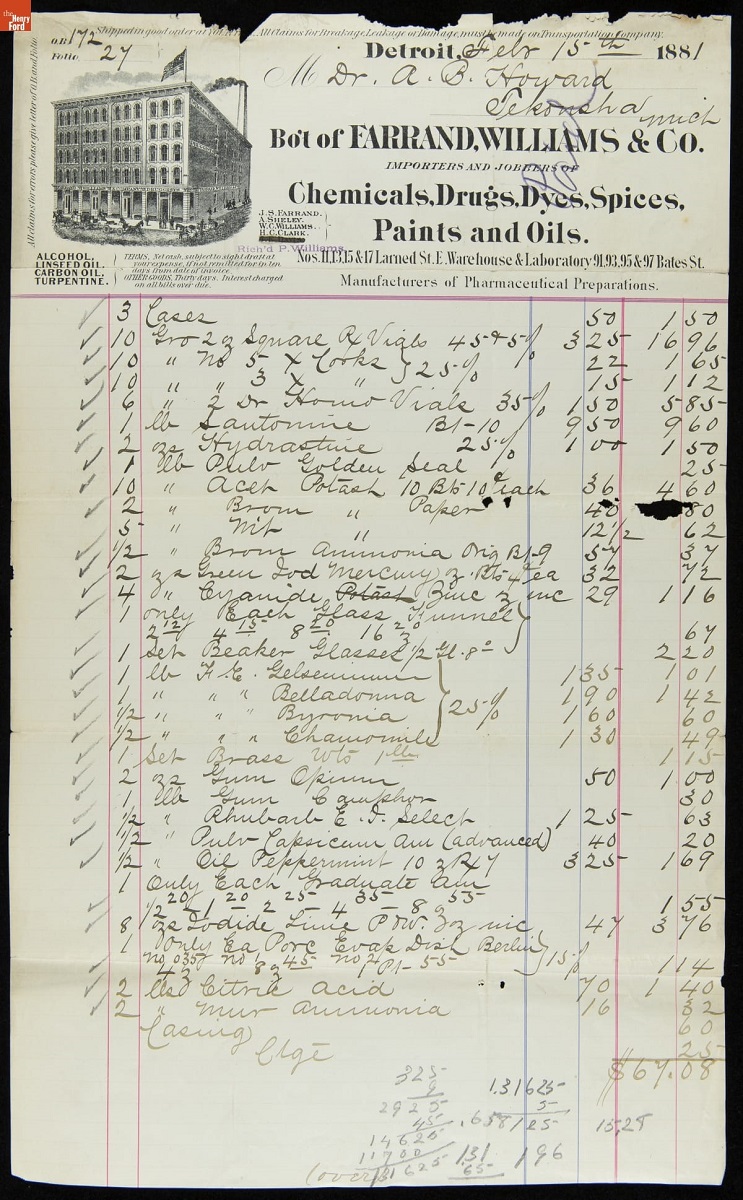 The Henry Ford
Shipped in good order at You All Claims for Breakage, Leakage or Damage, must be made on Transportation Company.
O.B. 172
Folio 27
All claims for errors please give letter of O.B. and Folio.
Detroit, Febr 15th 1881
M Dr. A. B. Howard
Tekonsha Mich
Bo't of FARRAND, WILLIAMS & CO.
IMPORTERS AND JOBBERS OF
Chemicals, Drugs, Dyes, Spices,
Paints and Oils.
J. S. FARRAND.
A. SHELEY.
W. C. WILLIAMS.
H. C. CLARK.
Rich'd P. Williams.
Nos. 11, 13, 15 & 17 Larned St. E. Warehouse & Laboratory 91, 93, 95 & 97 Bates St.
ALCOHOL.
LINSEED OIL.
CARBON OIL.
TURPENTINE.
TERMS, Net cash, subject to sight draft at your expense, if not remitted for in ten days from date of invoice.
OTHER GOODS, Thirty days. Interest charged on all bills over due.
Manufacturers of Pharmaceutical Preparations.
3 Cases 50 1 50
10 Gro 2 oz Square Rx Vials 45 & 5% 3 25 16 96
10 " No 5 X Corks } 25% 22 1 65
10 " " 3 X " 15 1 12
6 " 2 Dr Homo Vials 35% 1 50 5 85
1 lb Santonine Bt-10 9 50 9 60
2 ozs Hydrastine 25% 1 00 1 50
1 lb Pulv Golden Seal 25
10 " Acet Potash 10 Bts 10¢ each 36 4 60
2 " Brom " Paper 40 80
5 " Nit " 12 1/2 62
1/2 " Brom Ammonia Orig Bt-9 57 37
2 ozs Green Iod Mercury oz Bts 4 ea 32 72
4 " Cyanide Potash Zinc oz inc 29 1 16
1 only Each Glass Funnel
2 12 4 15 8 20 16 20 67
1 Set Beaker Glasses 1/2 Gl. 8 2 20
1 lb F. E. Gelsemium 1 35 1 01
1 " " " Belladonna 1 90 1 42
1/2 " " " Byronia } 25% 1 60 60
1/2 " " " Chamomile 1 30 49
1 Set Brass Wts 1 lb 1 15
2 ozs Gum Opium 50 1 00
1 lb Gum Camphor 30
1/2 " Rhubarb E. I. Select 1 25 63
1/2 " Pulv Capsicum Am (advanced) 40 20
1/2 " Oil Peppermint 10 z Rx 7 3 25 1 69
1 Only Each Graduate Am
1/2 20 1 20 2 25 4 35 8 z 55 1 55
8 ozs Iodide Lime Pow. oz inc 47 3 76
1 Only Ea Porc Evap Dish Berlin } 15%
no 0 35 no 45 no 2 Pt-55 1 14
4 z 8 z
2 lbs Citric Acid 70 1 40
2 " Mur Ammonia 16 32
Casing 60
Ctge 25
$67.08
325
9
2925
45
14625
11700
131625
1.31625
5
.658125
15.28
131
65
196
(over)